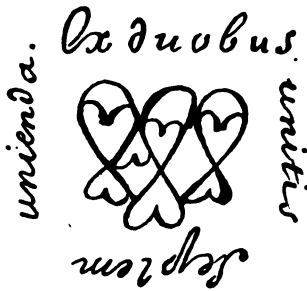 Ex duobus
unitis
Septem
unienda.